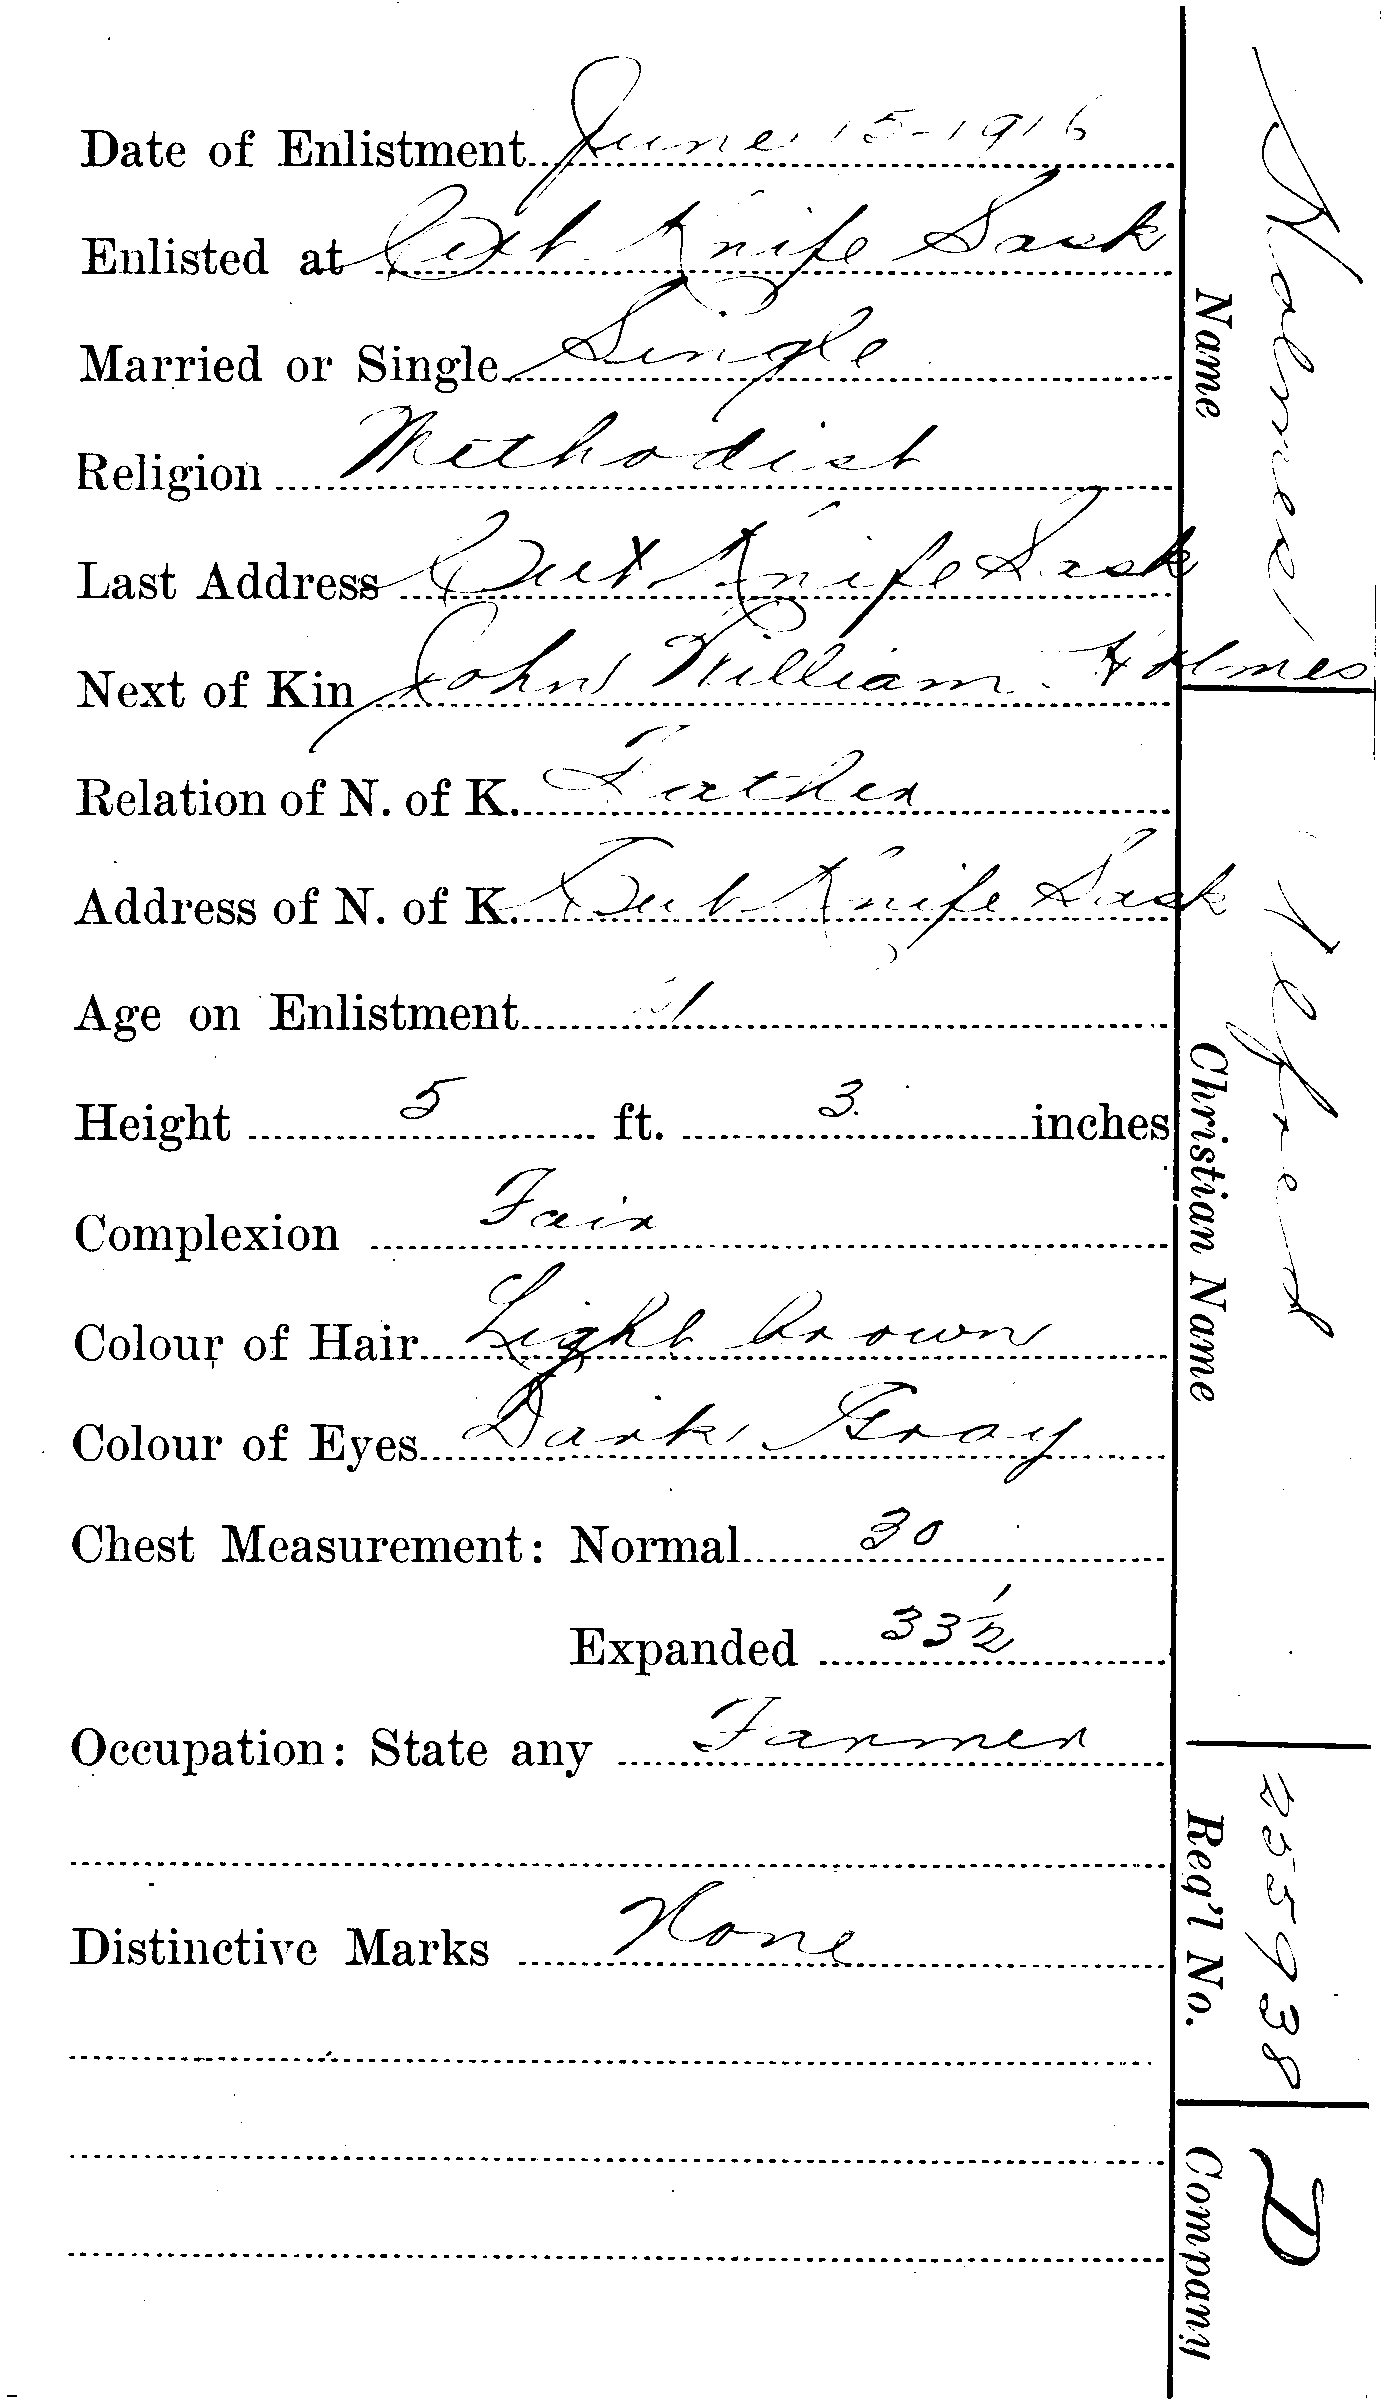 Date of Enlistment June 15-1916
Enlisted at Cut Knife Sask
Married or Single Single
Religion Methodist
Last Address Cut Knife Sask
Next of Kin John William Holmes
Relation of N. of K. Father
Address of N. of K. Cut Knife Sask
Age on Enlistment
Height 5 ft. 3 inches
Complexion Fair
Colour of Hair Light brown
Colour of Eyes Dark Gray
Chest Measurement: Normal 30
Expanded 33 1/2
Occupation: State any Farmer
Distinctive Marks None
Name Holmes
Christian Name Alfred
Reg'l No. 255938
Company D